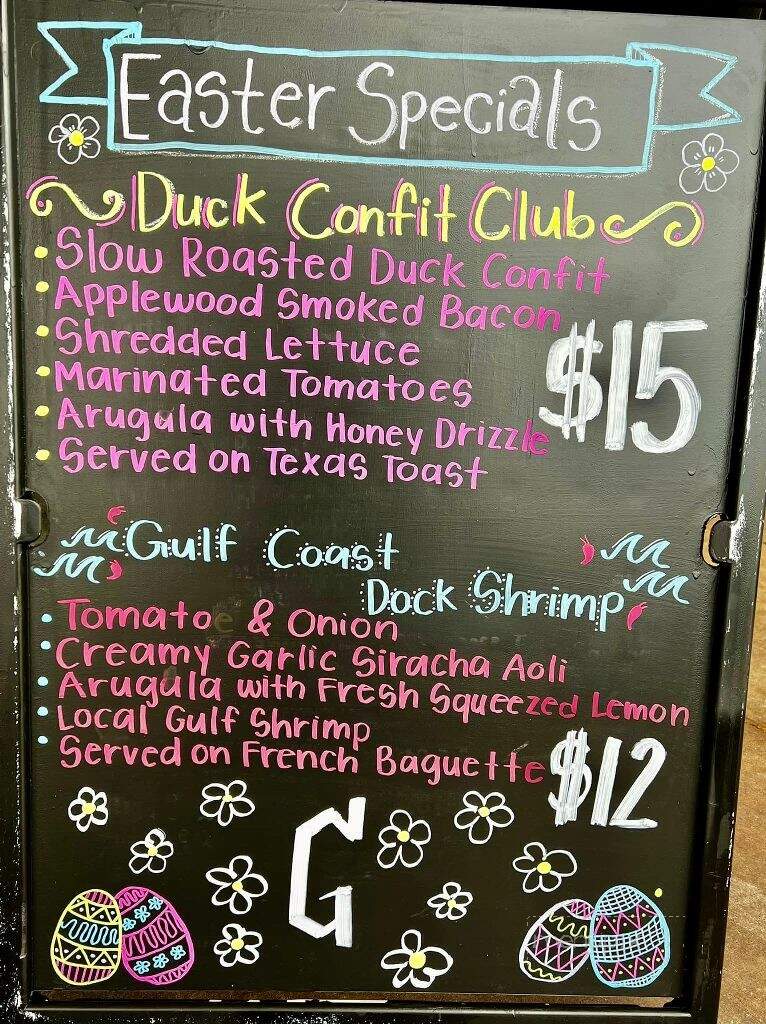 Easter Specials
Duck Confit Club
• Slow Roasted Duck Confit
• Applewood Smoked Bacon
• Shredded Lettuce
• Marinated Tomatoes
• Arugala with Honey Drizzle
• Served on Texas Toast
$15
Gulf Coast
Dock Shrimp
• Tomato & Onion
• Creamy Garlic Siracha Aoli
• Arugala with Fresh Squeezed Lemon
• Local Gulf Shrimp
• Served on French Baguette
$12
G